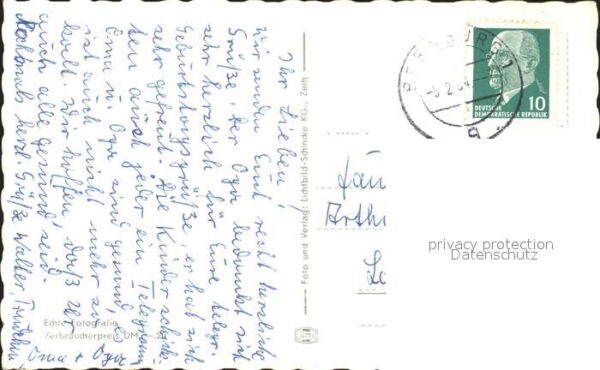 Ihr Lieben!
Wir senden Euch recht herzliche
Grüße, der Opa bedankt sich
sehr herzlich für Eure telegr.
Geburtstagsgrüße, er hat sich
sehr gefreut. Die Kinder schick-
ten auch jeder ein Telegramm
Oma u. Opa sind gesund, es
ist auch nicht mehr so
kalt. Wir hoffen, daß Ihr
auch alle gesund seid.
Nochmals herzl. Grüße Walter,
Oma + Opa
Echte Fotografie
Verbraucherpreis DM
Foto und Verlag: Lichtbild-Schincke KG., Zeitz
BERNBURG 1
2.64
DEUTSCHE
DEMOKRATISCHE REPUBLIK
10
Fam
Arth
Le
privacy protection
Datenschutz